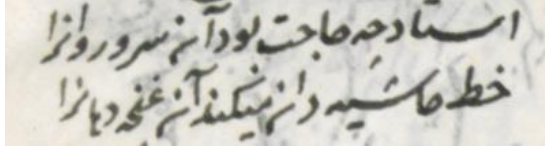 استاد چه حاجت بود آن سرو روانرا
خط حاشیه دان میکند آن غنچه دهانرا